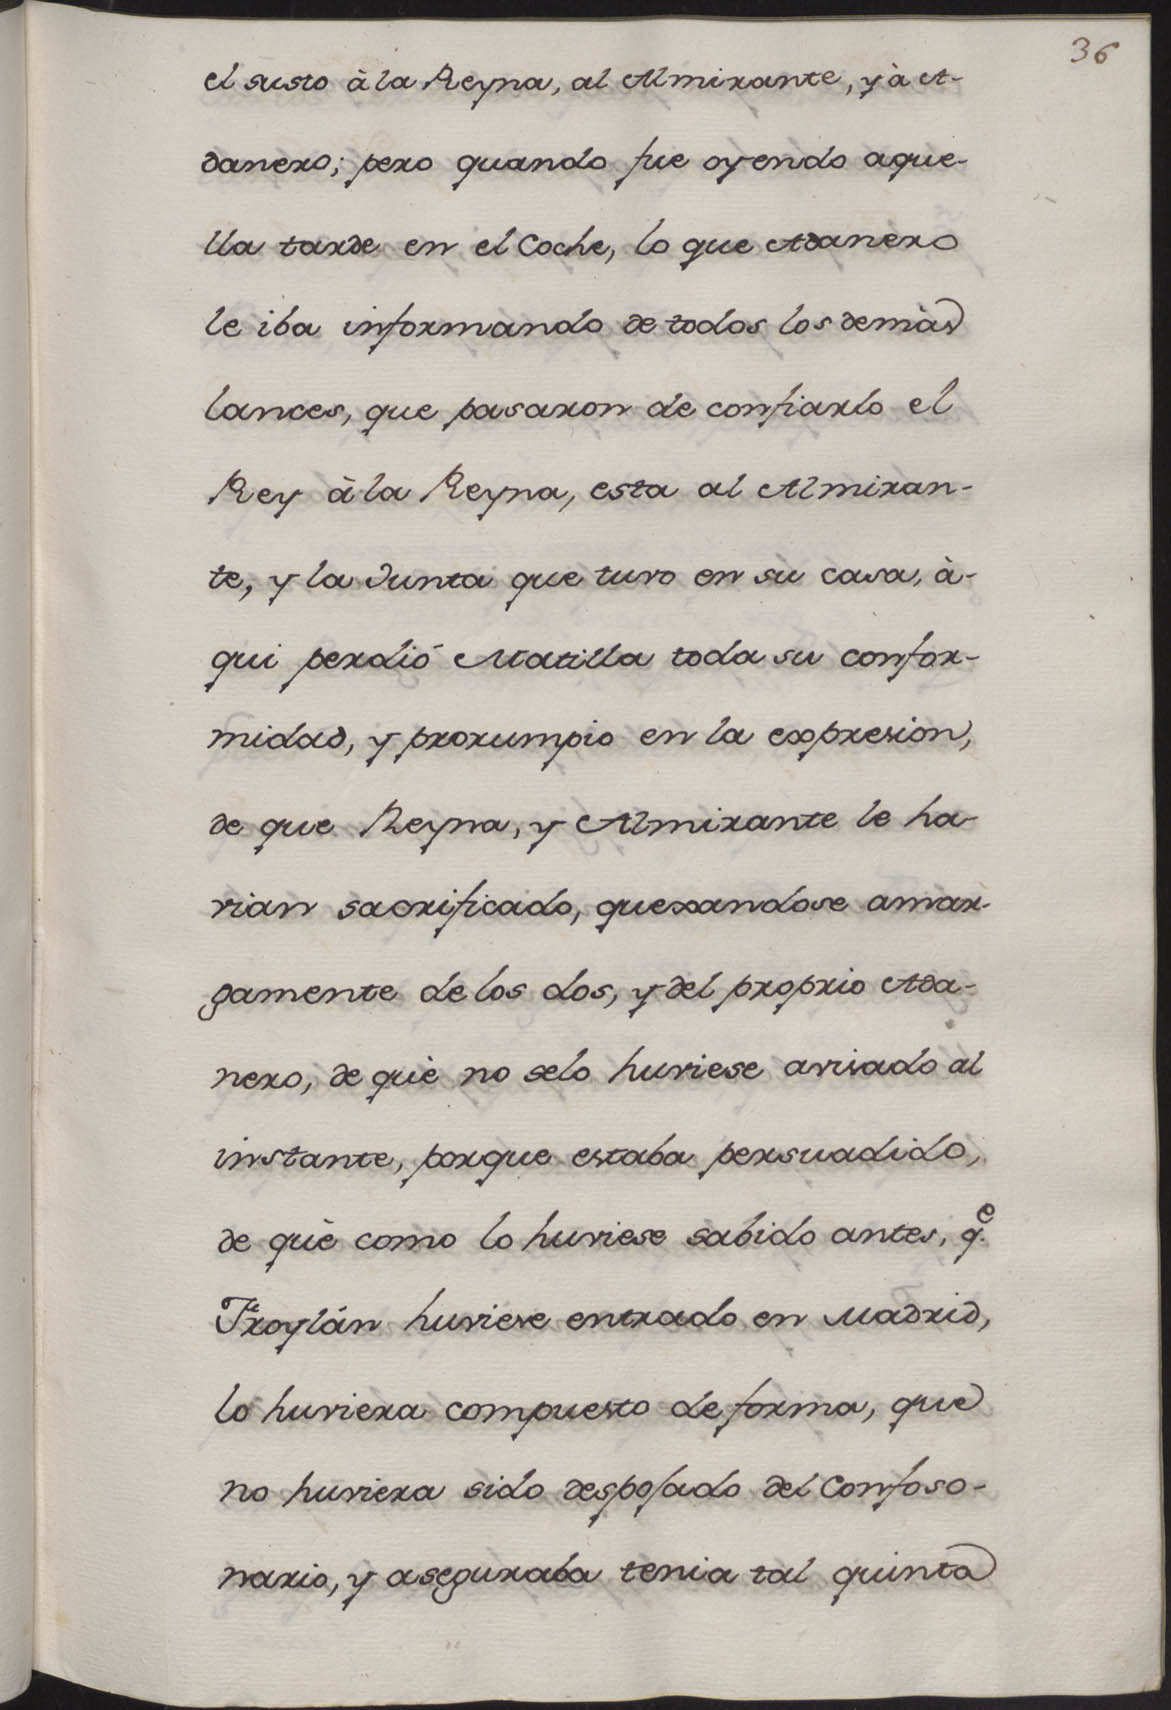 36
el susto à la Reyna, al Almirante, y à A-
danero; pero quando fue oyendo aque-
lla tarde en el Coche, lo que Adanero
le iba informando de todos los demàs
lances, que pasaron de confiarlo el
Rey à la Reyna, esta al Almiran-
te, y la Junta que tuvo en su casa, à-
qui perdió Matilla toda su confor-
midad, y prorumpio en la expresion,
de que Reyna, y Almirante le ha-
vian sacrificado, quexandose amar-
gamente de los dos, y del proprio Ada-
nero, de què no selo huviese avisado al
instante, porque estaba persuadido,
de què como lo huviese sabido antes, q.e
Froylán huviese entrado en Madrid,
lo huviera compuesto de forma, que
no huviera sido despojado del Confeso-
nario, y aseguraba tenia tal quinta